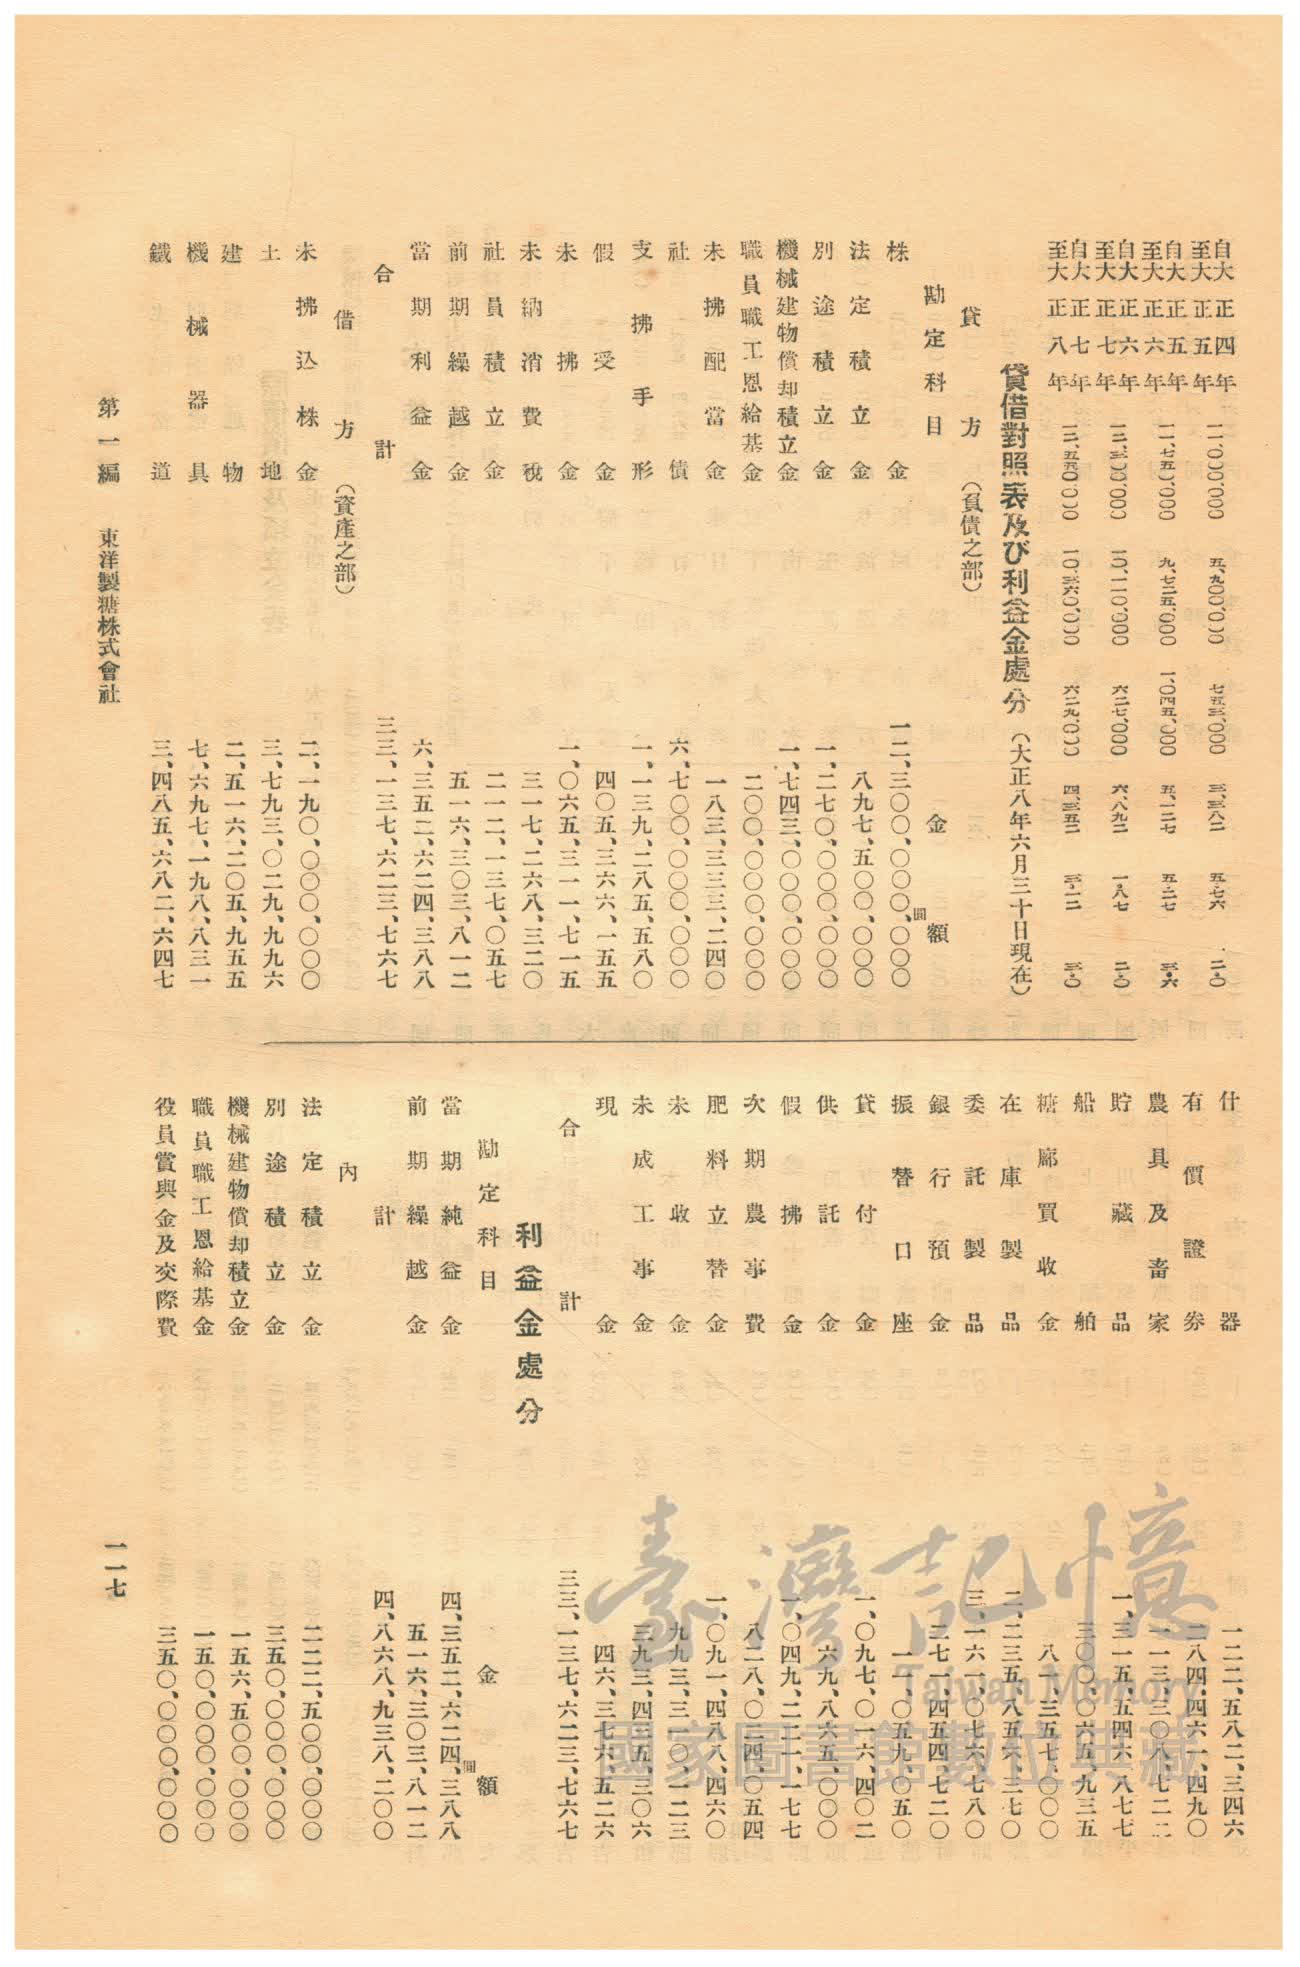 自大正四年
至大正五年 一一、〇〇〇、〇〇〇 五、九〇〇、〇〇〇 七五三、〇〇〇 三、三八二 五・七六 一二・〇
自大正五年
至大正六年 一一、七五〇、〇〇〇 九、七二五、〇〇〇 一、〇四五、〇〇〇 五、一二七 五・二七 三・六
自大正六年
至大正七年 六二七、〇〇〇 六、八九二 一・八七 二・〇
自大正七年
至大正八年 六二九、〇〇〇 四、三五二 三・一二 三・〇
貸借對照表及び利益金處分（大正八年六月三十日現在）
貸方（負債之部）
勘定科目 金額
株金 一二、三〇〇、〇〇〇、〇〇〇圓
法定積立金 八九七、五〇〇、〇〇〇
別途積立金 一、二七〇、〇〇〇、〇〇〇
機械建物償却積立金 一、七四三、〇〇〇、〇〇〇
職員職工恩給基金 二〇〇、〇〇〇、〇〇〇
未拂配當金 一八三、三三三、二四〇
社債 六、七〇〇、〇〇〇、〇〇〇
支拂手形 一、一三九、二八五、五八〇
假受金 四〇五、三六六、一五五
未拂金 一、〇六五、三一一、七一五
未納消費稅 三一七、二六八、三二〇
社員積立金 二一二、一三七、〇五七
前期繰越金 五一六、三〇三、八一二
當期利益金 六、三五二、六二四、三八八
合計 三三、一三七、六二三、七六七
借方（資產之部）
未拂込株金 二、一九〇、〇〇〇、〇〇〇
土地 三、七九三、〇二九、九九六
建物 二、五一六、二〇五、九五五
機械器具 七、六九七、一九八、八三一
鐵道 三、四八五、六八二、六四七
什器 一二二、五八二、三四六
有價證券 二八四、四六一、四九〇
農具及畜家 一一三、三〇八、七二二
貯藏品 一、三一五、五四六、八七七
船舶 三〇〇、〇六五、九三五
糖廍買收金 八一、三五七、〇〇〇
在庫製品 二、二三五、八五六、三七〇
委託製品 三、一六一、〇七六、七八〇
銀行預金 二七一、四五四、七二〇
振替口座 一一〇、〇五九、〇五〇
貸付金 一、〇九七、〇一六、四〇二
供託金 六九、八六五、〇〇〇
假拂金 一、〇四九、二二一、一七七
次期農事費 八二八、〇二四、〇五四
肥料立替金 一、〇九一、四八八、四六〇
未收金 九九三、三一〇、一二三
未成工事金 三九三、四三五、三〇六
現金 四六、三七六、五二六
合計 三三、一三七、六二三、七六七
利益金處分
勘定科目 金額
當期純益金 四、三五二、六二四、三八八圓
前期繰越金 五一六、三〇三、八一二
計 四、八六八、九三八、二〇〇
內
法定積立金 二二二、五〇〇、〇〇〇
別途積立金 三五〇、〇〇〇、〇〇〇
機械建物償却積立金 一五六、五〇〇、〇〇〇
職員職工恩給基金 一五〇、〇〇〇、〇〇〇
役員賞與金及交際費 三五〇、〇〇〇、〇〇〇
第一編 東洋製糖株式會社
一一七
臺灣記憶
Taiwan Memory
國家圖書館數位典藏